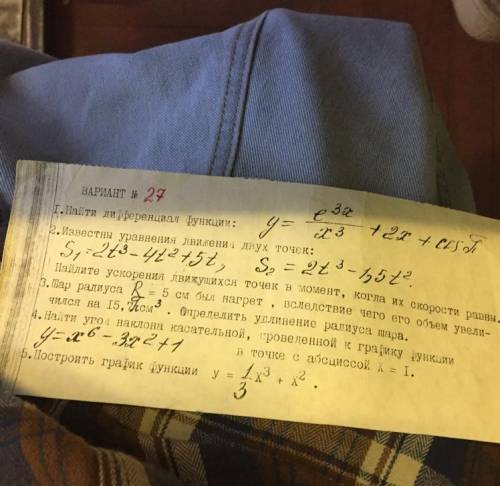 ВАРИАНТ № 27
1.Найти дифференциал функции: y = e^3x / x^3 + 2x + cos π
2.Известны уравнения движения двух точек:
S₁=2t³-4t²+5t, S₂ = 2t³-1,5t².
Найдите ускорения движущихся точек в момент, когда их скорости равны.
3.Шар радиуса R = 5 см был нагрет, вследствие чего его объем увели-
чился на 15, π см³. Определить удлинение радиуса шара.
4.Найти угол наклона касательной, проведенной к графику функции
y=x⁶-3x²+1 в точке с абсциссой x = 1.
5.Построить график функции y = 1/3 x³ + x².